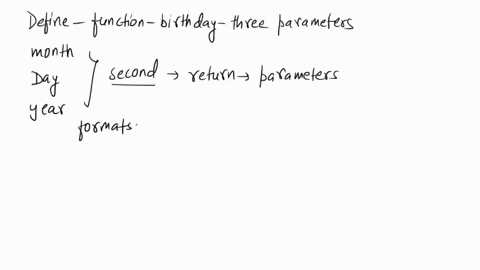 Define - function - birthday - three parameters
month
Day
year
second → return → parameters
formats.